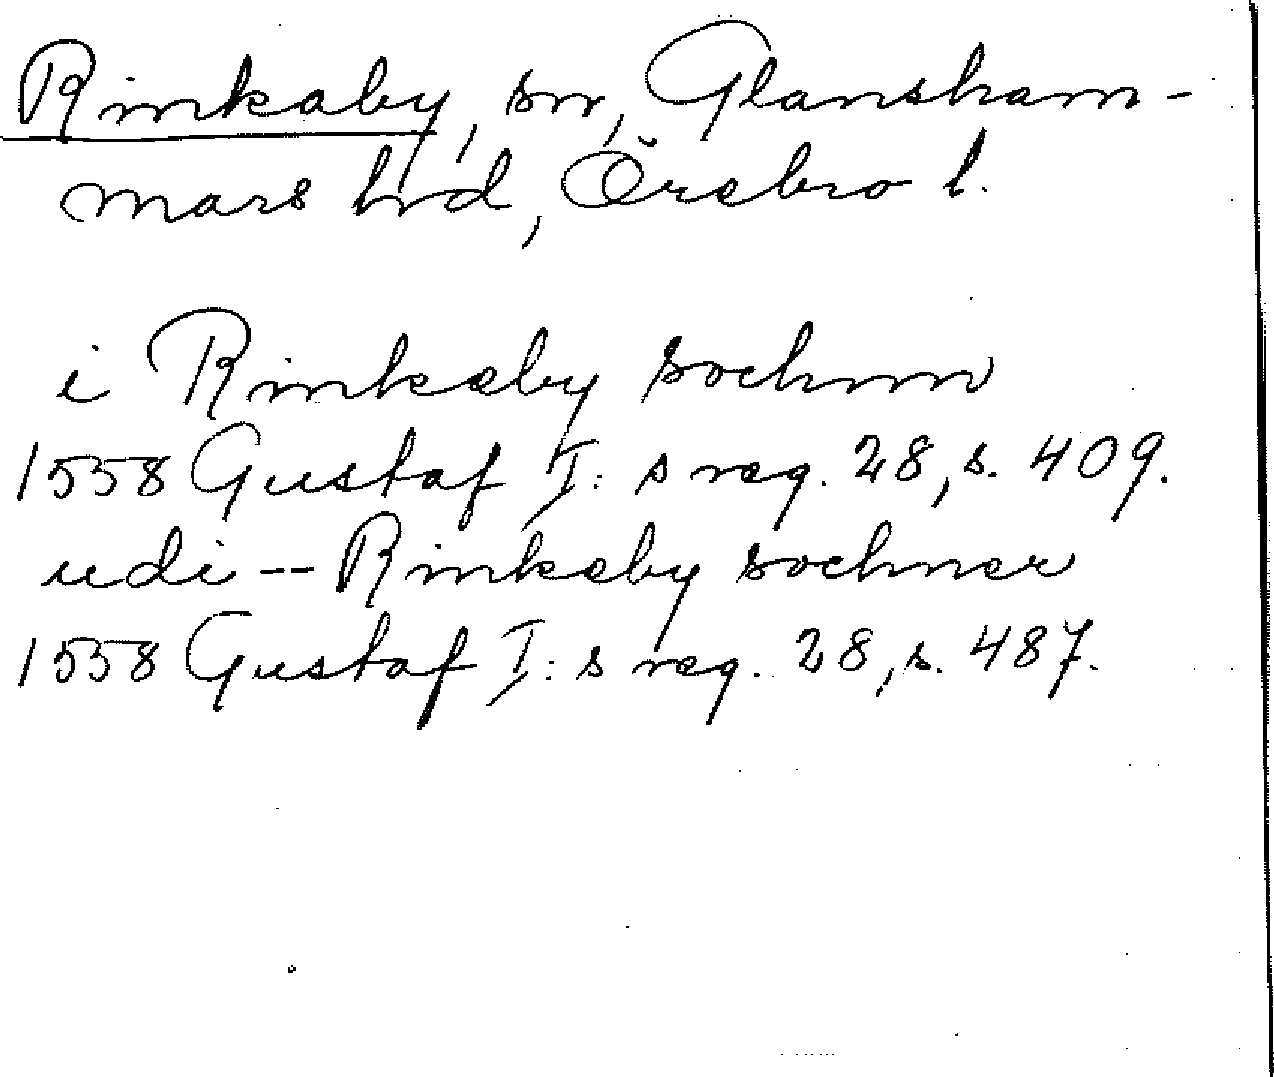 Rinkaby, sn, Glansham-
mars hd, Örebro l.
i Rinkeby sochnn
1558 Gustaf I: s reg. 28, s. 409.
udi -- Rinkeby sochner
1558 Gustaf I: s reg. 28, s. 487.